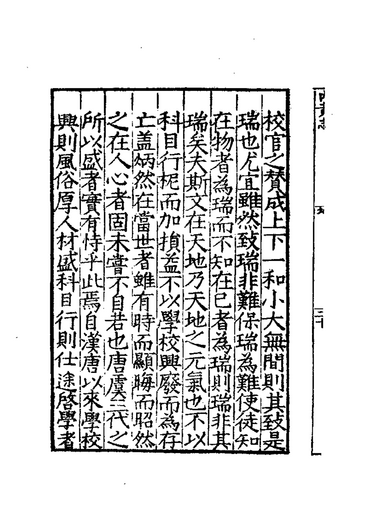 校官之賛成上下一和小大無間則其致是
瑞也尤宜雖然致瑞非難保瑞為難使徒知
在物者為瑞而不知在已者為瑞則瑞非其
瑞矣夫斯文在天地乃天地之元氣也不以
科目行柅而加損益不以學校興廢而為存
亡盖炳然在當世者雖有時而顯晦而昭然
之在人心者固未嘗不自若也唐虞三代之
所以盛者實有恃乎此焉自漢唐以來學校
興則風俗厚人材盛科目行則仕途啓學者